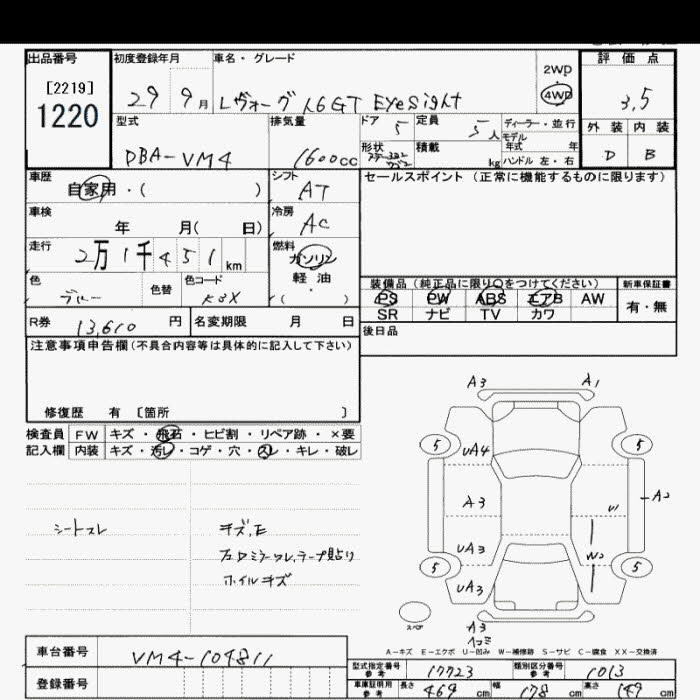 出品番号 初度登録年月 車名・グレード 評価点
[2219]
1220
29 9月 レヴォーグ 1.6GT EyeSight
2WD
4WD
3.5
外装 内装
D B
型式 排気量 ドア 定員 ディーラー・並行
DBA-VM4 1600cc 5 5人 モデル年式 年
形状 積載 kg ハンドル 左・右
車歴 シフト セールスポイント (正常に機能するものに限ります)
自家用・( ) AT
車検 冷房
年 月( 日) AC
走行 燃料
2万1千451km ガソリン
軽油
・
( )
色 色替 色コード
ブルー K3X
装備品 (純正品に限り○をつけてください) 新車保証書
PS PW ABS エアB AW 有・無
SR ナビ TV カワ
R券 13,610円 名変期限 月 日
後日品
注意事項申告欄(不具合内容等は具体的に記入して下さい)
修復歴 有 〔箇所 〕
検査員 FW キズ・飛石・ヒビ割・リペア跡・×要
記入欄 内装 キズ・汚レ・コゲ・穴・スレ・キレ・破レ
シートスレ
キズ,E
左ドアミラーワレ,テープ貼り
ホイルキズ
A3 A1
5 5
UA4
A3 A2
U1
UA3 W2
5 5
UA3
スペア
A3
ヘコミ
A-キズ E-エクボ U-凹み W-補修跡 S-サビ C-腐食 XX-交換済
車台番号 VM4-104811
登録番号
型式指定番号 参考 17723 類別区分番号 参考 1013
車庫証明用 参考 長さ 469cm 幅 178cm 高さ 149cm